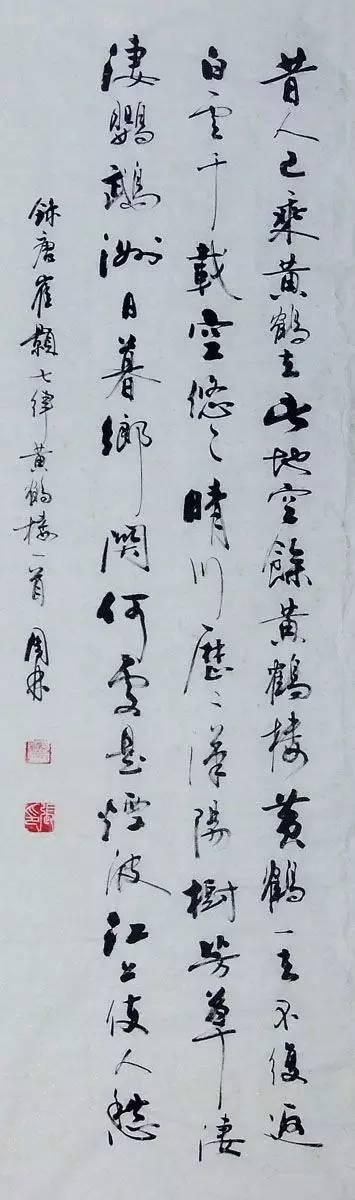 昔人已乘黄鶴去此地空餘黄鶴樓黄鶴一去不復返
白雲千載空悠々晴川歷々漢陽樹芳草凄
凄鸚鵡洲日暮鄉關何處是煙波江上使人愁
錄唐崔顥七律黄鶴樓一首